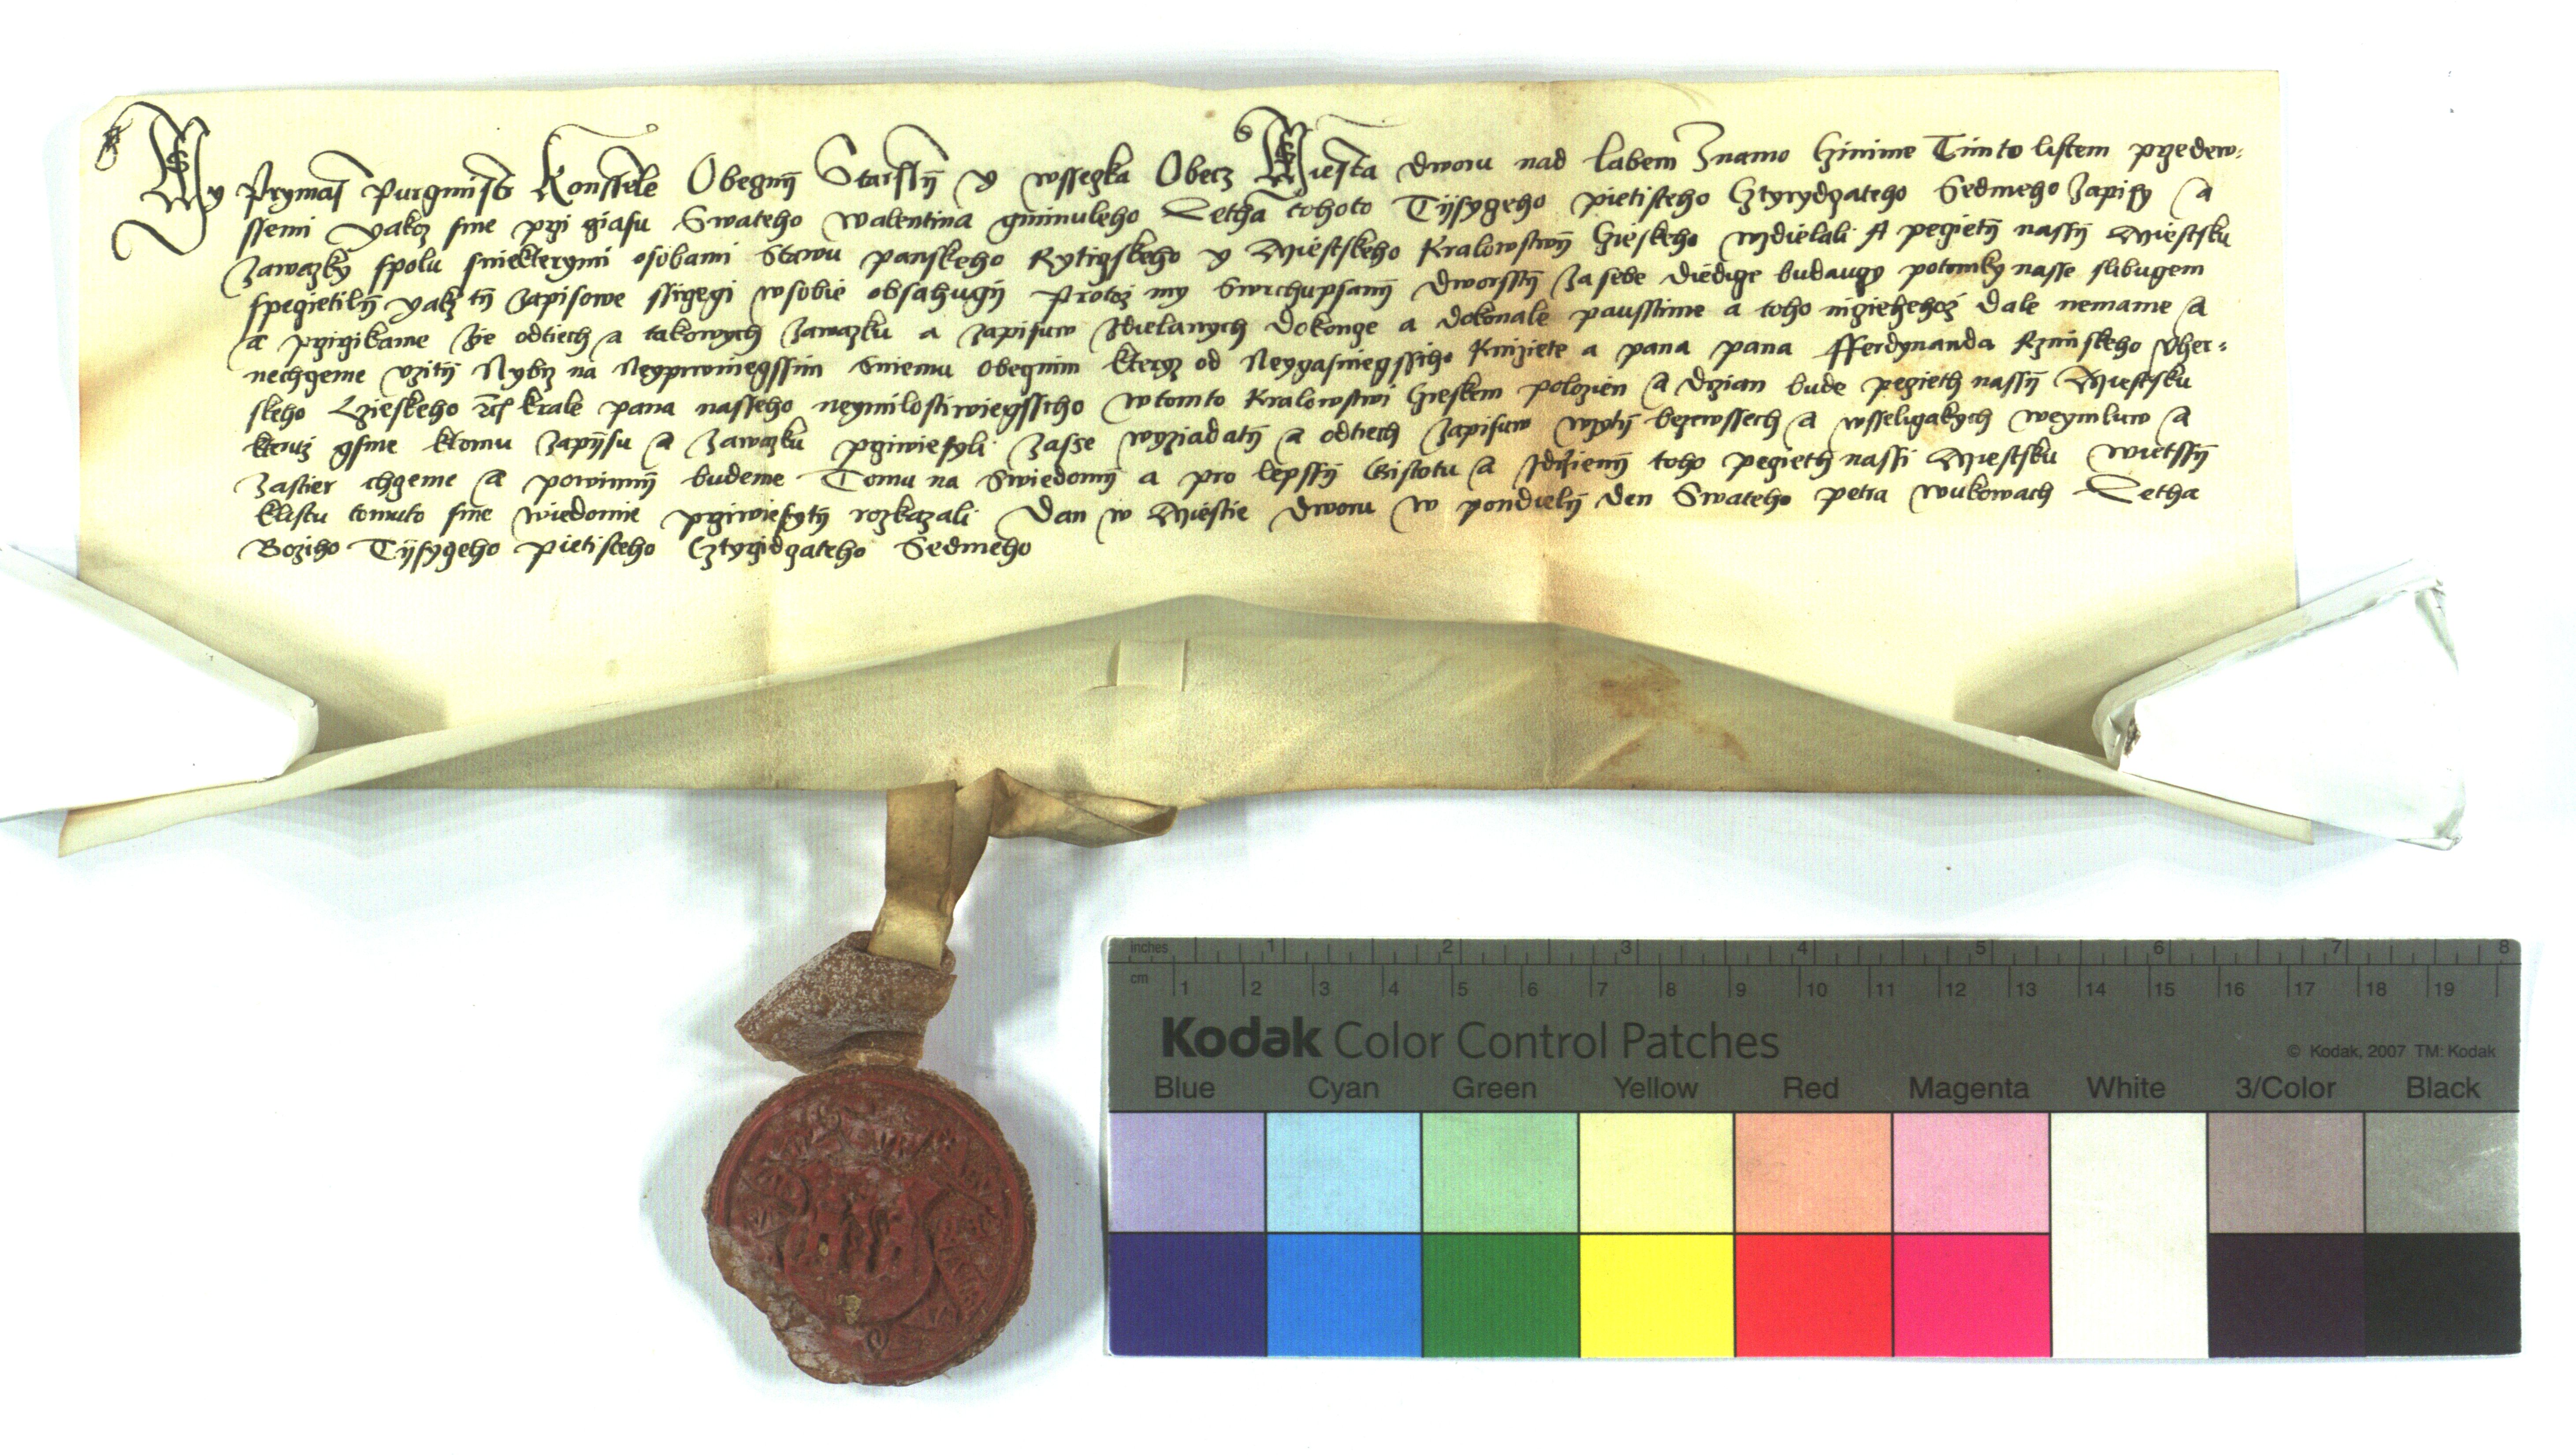 My Prymas Purgmistr Konssele Obegnij Starssij y wssegka Obecz Miesta dworu nad labem Znamo Czinime Timto listem przedew-
ssemi yakoz sme przi cziasu Swateho walentina gminuleho Letha tohoto Tijsygeho pietisteho Cztyrydczateho Sedmeho Zapisy a
Zawazky spolu sniekterymi osobami Stawu panskeho Rytirzskeho y Miestskeho Kralowstwij Czieskeho wzdielali A pegietij nassij Miestsku
spegietilij yakz tij Zapisowe ssirzegi wsobie obsahugij Protoz my Swrchupsanij Dworsstij Za sebe diedicze budauczy potomky nasse slibugem
a przirzikame Zie odtiech a takowych Zawazku a Zapisuw Zdielanych dokoncze a dokonale pausstime a toho nicziehehoz dale nemame a
nechczeme vziti Nybrz na Neyprwniegssim Sniemu obecznim kteryz od Neygasniegssiho Knizete a pana pana Fferdynanda Rzimskeho Vher-
skeho Czieskeho krale pana nasseho neymilostiwiegssiho wtomto Kralowstwi Czieskem polozien a drzian bude pegieth nassij Miestsku
kteruz gsme ktomu Zapijsu a Zawazku prziwiesyli Zasse wyziadatij a odtiech Zapisuw wzytij bezewssech a wsseligakych weymluw a
Zastier chczeme a powinnij budeme Tomu na Swiedomij a pro lepssij Gistotu a Zdrzienij toho pegieth nassi Miestsku wietssij
klistu tomuto sme wiedomie prziwiesytij rozkazali Dan w Miestie Dworu w pondielij den Swateho petra wukowach Letha
Boziho Tijsyczeho pietisteho Cztyrzidczateho Sedmeho
inches 1 2 3 4 5 6 7 8
cm 1 2 3 4 5 6 7 8 9 10 11 12 13 14 15 16 17 18 19
Kodak Color Control Patches
© Kodak, 2007 TM: Kodak
Blue Cyan Green Yellow Red Magenta White 3/Color Black